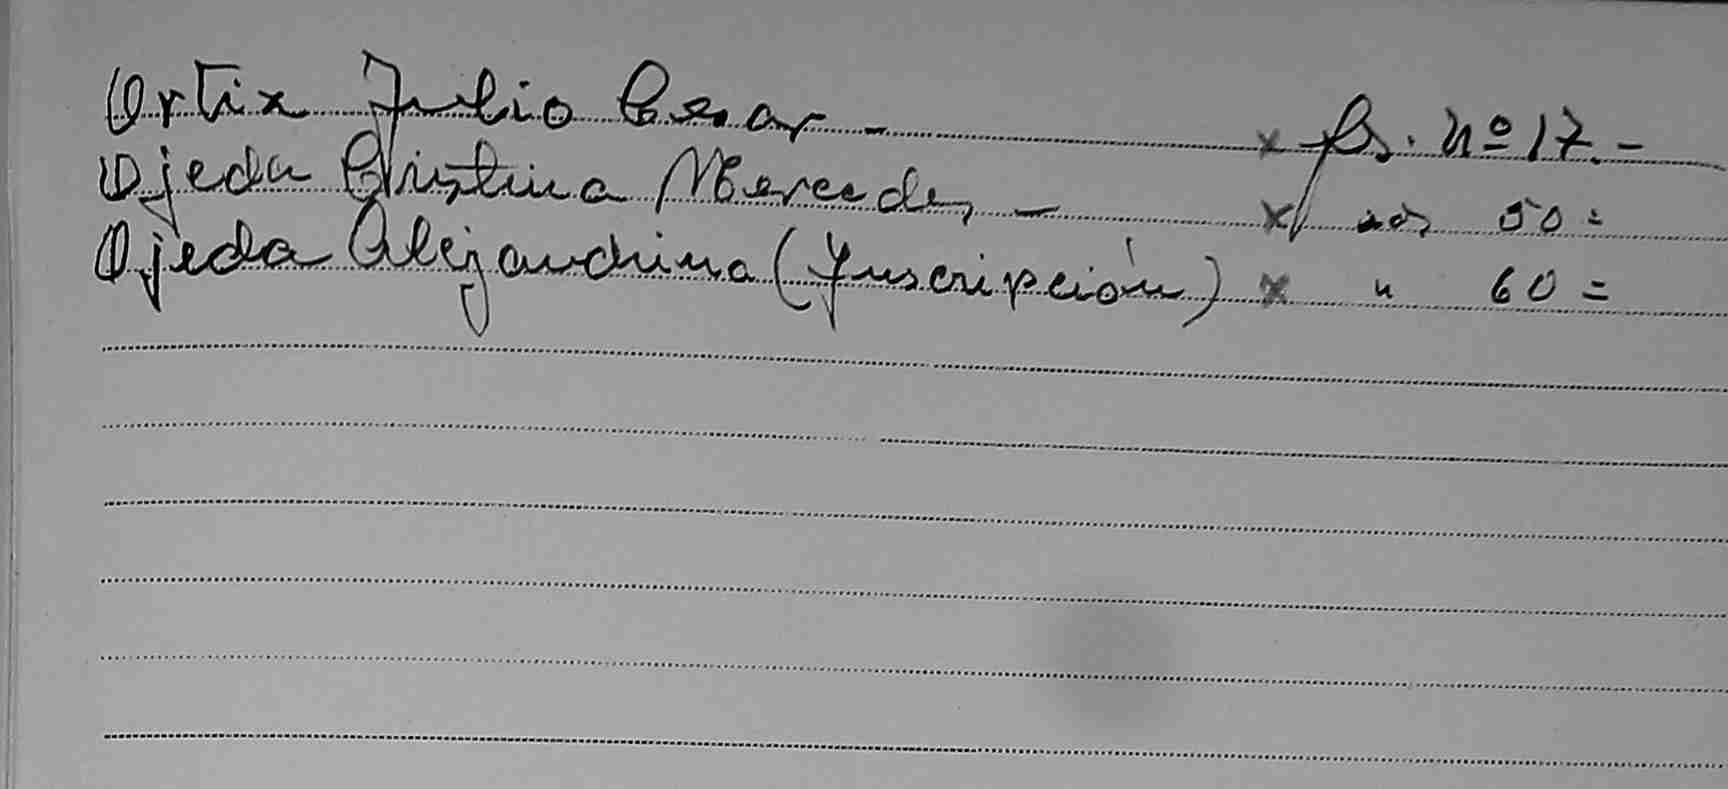 Ortiz Julio Cesar - x fs. nº 17.-
Ojeda Cristina Mercedes - x 50=
Ojeda Alejandrina (Inscripción) x " 60=